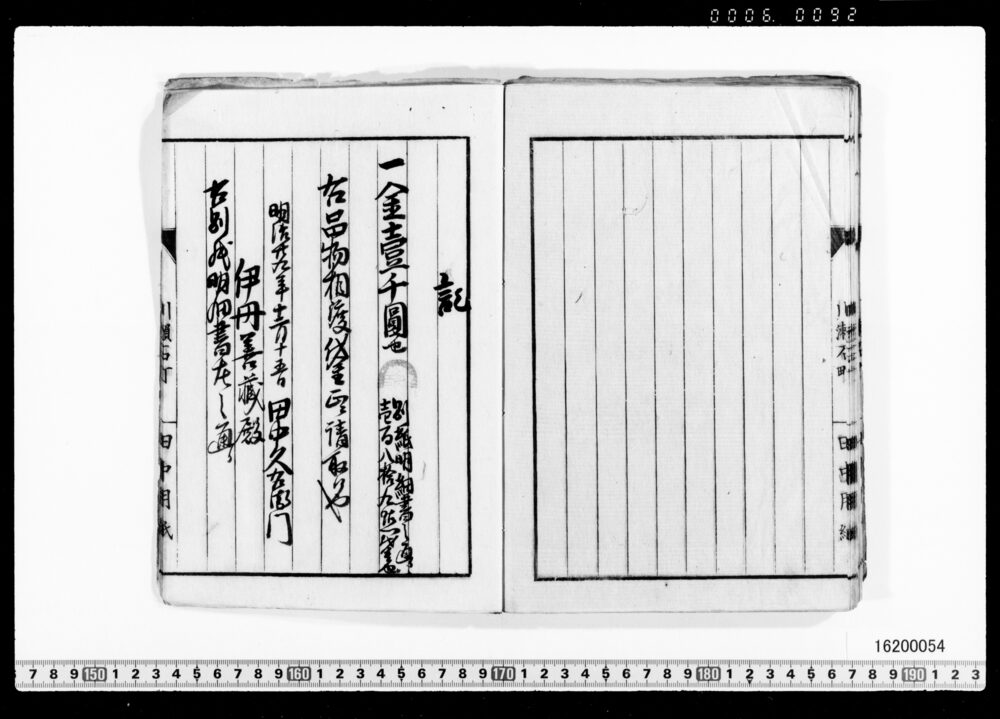 0006.0092
川瀬石町
田中用紙
記
一金壹千圓也
別紙明細書之通り
壱百八拾九点代金也
右品物相渡代金正ニ請取候也
明治廿九年十二月十五日 田中久右衛門
伊丹善藏殿
右別紙明細書左之通り
川瀬石町
田中用紙
16200054
7 8 9 150 1 2 3 4 5 6 7 8 9 160 1 2 3 4 5 6 7 8 9 170 1 2 3 4 5 6 7 8 9 180 1 2 3 4 5 6 7 8 9 190 1 2 3